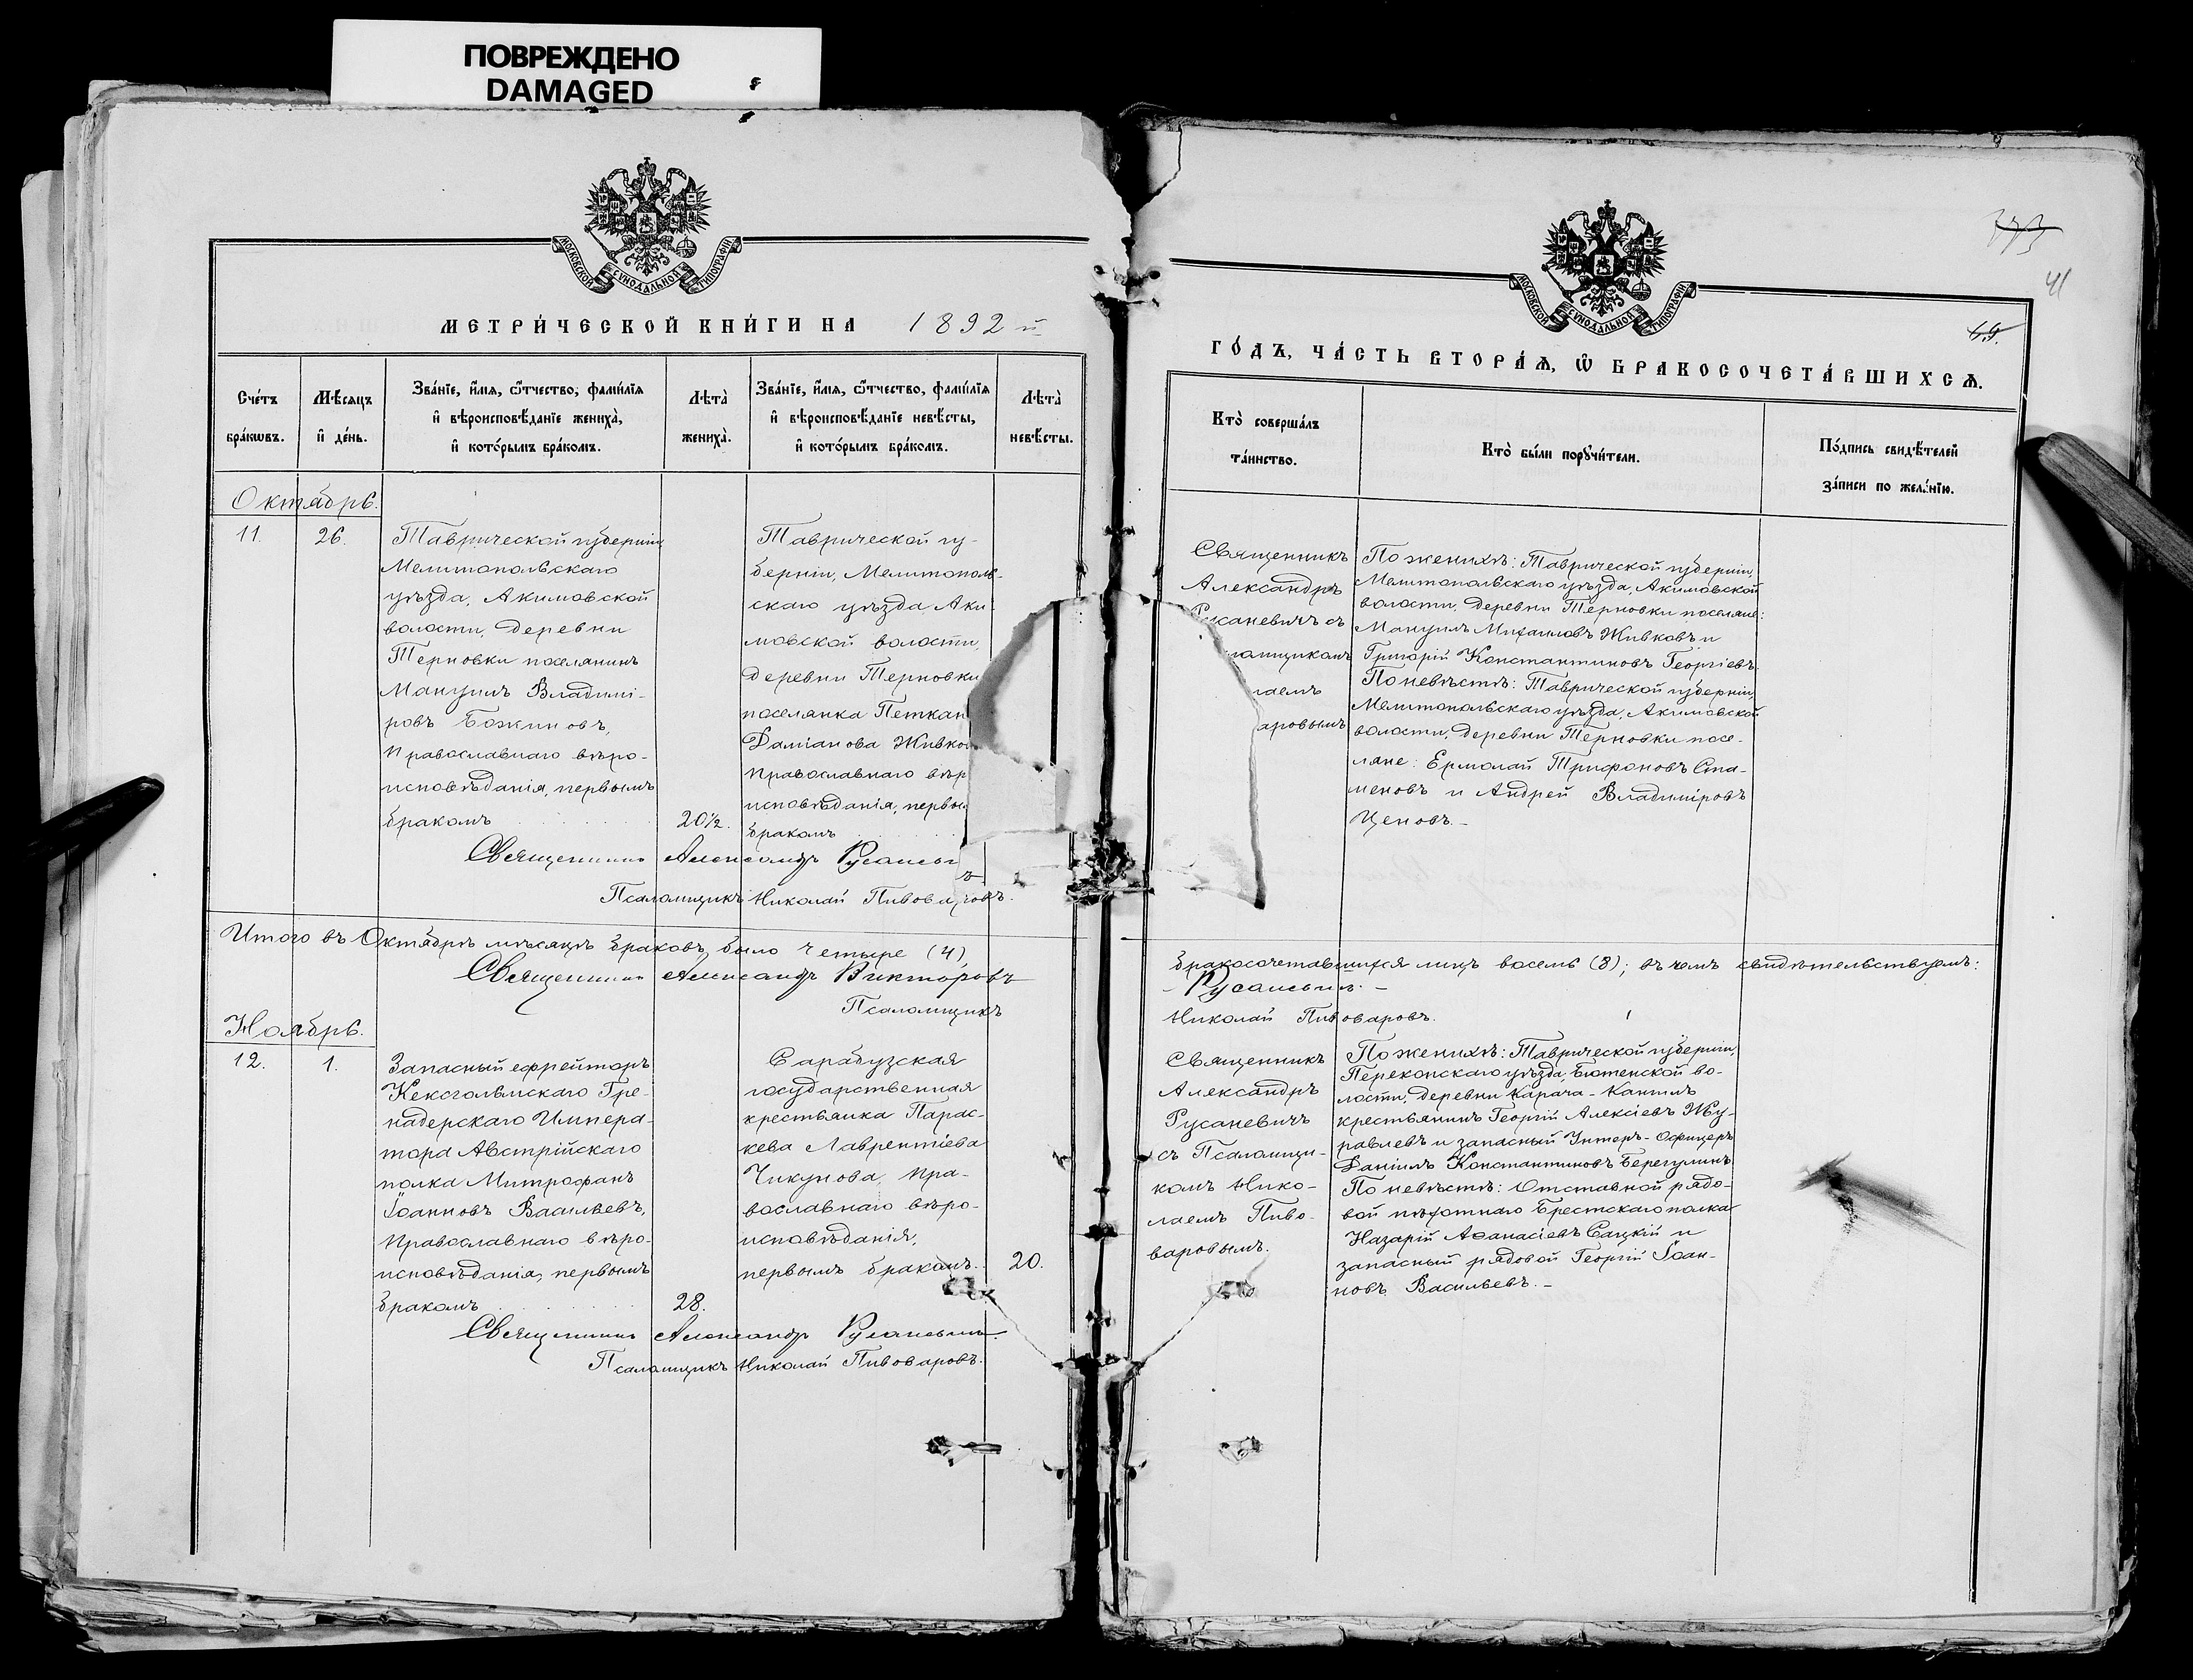 ПОВРЕЖДЕНО
DAMAGED
МОСКОВСКОЙ СѴНОДАЛЬНОЙ ТИПОГРАФІИ
МЕТРИ́ЧЕСКОЙ КНИ́ГИ НА 1892 й
Сче́тъ
бра́кѡвъ.
Мѣ́сяцъ
и҆ де́нь.
Зва́нїе, и҆́мя, ѻ҆́тчество, фами́лїя
и҆ вѣроисповѣ́данїе жениха̀,
и҆ кото́рымъ бра́комъ.
Лѣта̀
жениха̀.
Зва́нїе, и҆́мя, ѻ҆́тчество, фами́лїя
и҆ вѣроисповѣ́данїе невѣ́сты,
и҆ кото́рымъ бра́комъ.
Лѣта̀
невѣ́сты.
Октябрь.
11.
26.
Таврической губерніи
Мелитопольскаго
уѣзда, Акимовской
волости, деревни
Терновки поселянинъ
Мануилъ Владимі-
ровъ Божиновъ,
православнаго вѣро-
исповѣданія, первымъ
бракомъ
20½.
Таврической гу-
берніи, Мелитополь-
скаго уѣзда Аки-
мовской волости,
деревни Терновки
поселянка Петкан
Даміанова Живко
православнаго вѣр
исповѣданія, первы
бракомъ
Священникъ Александръ Русаневи
Псаломщикъ Николай Пивоваровъ.
Итого въ Октябрѣ мѣсяцѣ браковъ было четыре (4)
Священникъ Александръ Викторовъ
Псаломщикъ
Ноябрь.
12.
1.
Запасный ефрейторъ
Кексгольмскаго Гре-
надерскаго Импера-
тора Австрійскаго
полка Митрофанъ
Іоанновъ Васильевъ,
православнаго вѣро-
исповѣданія, первымъ
бракомъ
28.
Сарабузская
государственная
крестьянка Парас-
кева Лаврентіева
Чикунова, пра-
вославнаго вѣро-
исповѣданія,
первымъ бракомъ.
20.
Священникъ Александръ Русаневичъ.
Псаломщикъ Николай Пивоваровъ.
МОСКОВСКОЙ СѴНОДАЛЬНОЙ ТИПОГРАФІИ
41
ГО́ДЪ, ЧА́СТЬ ВТОРА́Я, Ѡ҆ БРАКОСОЧЕТА́ВШИХСЯ.
Кто̀ соверша́лъ
та́инство.
Кто̀ бы́ли порꙋчи́тели.
По́дпись свидѣ́телей
за́писи по жела́нїю.
Священникъ
Александръ
Русаневичъ съ
ломщикомъ
лаемъ
аровымъ
По женихѣ: Таврической губерніи,
Мелитопольскаго уѣзда, Акимовской
волости, деревни Терновки поселяне:
Мануилъ Михаиловъ Живковъ и
Григорій Константиновъ Георгіевъ.
По невѣстѣ: Таврической губерніи,
Мелитопольскаго уѣзда, Акимовской
волости, деревни Терновки посе-
ляне: Ермолай Трифоновъ Ста-
меновъ и Андрей Владиміровъ
Ценовъ.-
бракосочетавшихся лицъ восемь (8); въ чемъ свидѣтельствуемъ:
Русаневичъ.-
Николай Пивоваровъ.
Священникъ
Александръ
Русаневичъ
съ Псаломщи-
комъ Нико-
лаемъ Пиво-
варовымъ.
По женихѣ: Таврической губерніи,
Перекопскаго уѣзда, Бютенской во-
лости, деревни Карача-Кангилъ
крестьянинъ Георгій Алексіевъ Жу-
равлевъ и запасный Унтеръ-Офицеръ
Даніилъ Константиновъ Берегулинъ.
По невѣстѣ: Отставной рядо-
вой пѣхотнаго Брестскаго полка
Назарій Аѳанасіевъ Сацкій и
запасный рядовой Георгій Іоан-
новъ Васильевъ.-